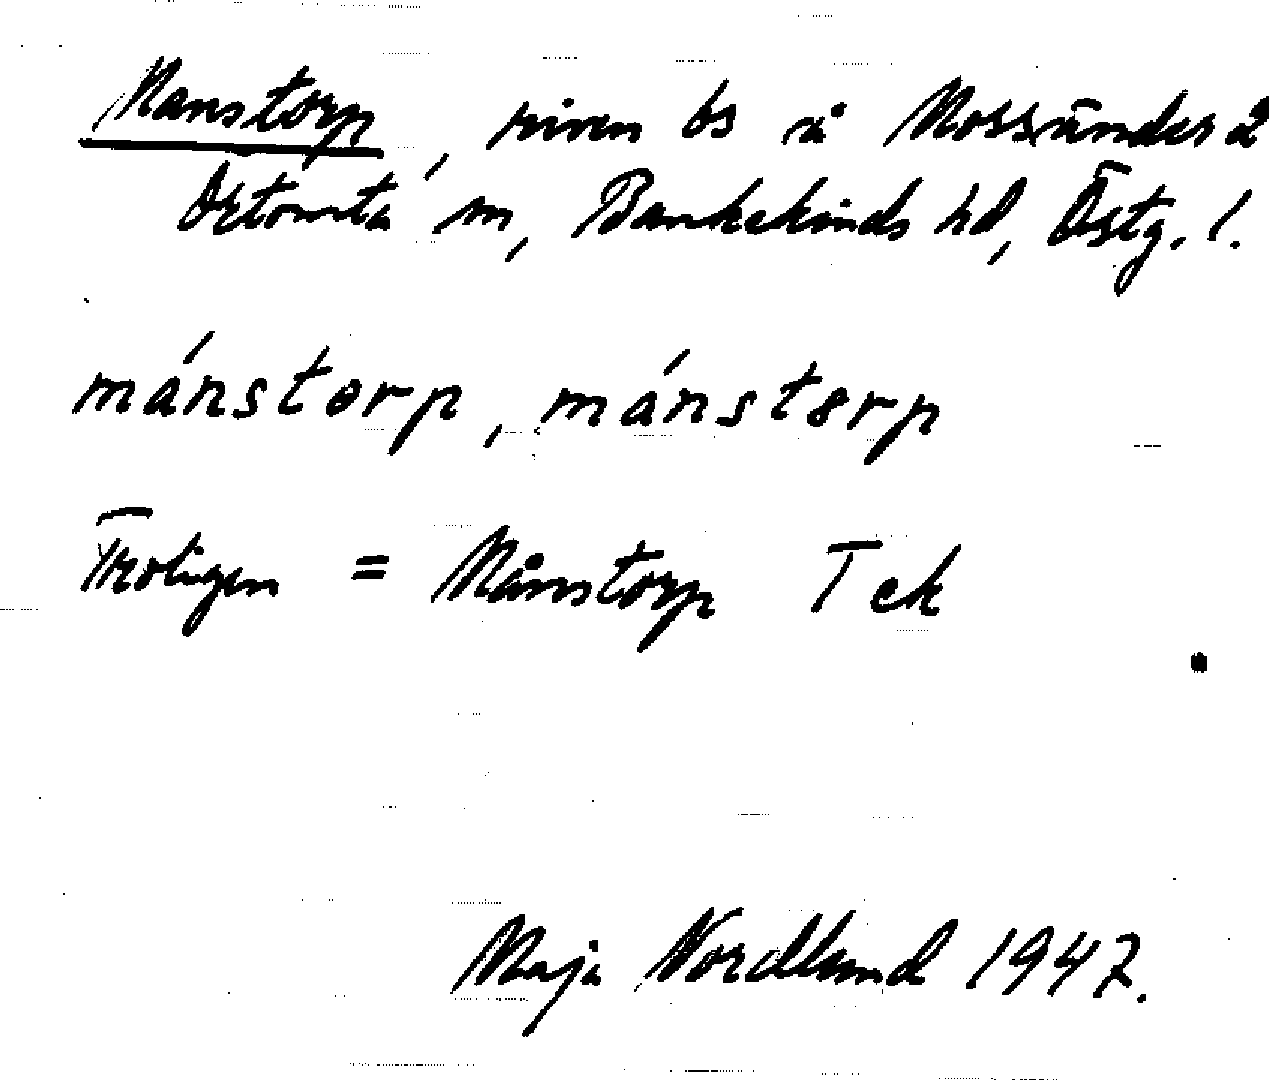 Manstorp, riven bs å Mossänder 2
Örtomta sn, Bankekinds hd, Östg. l.
mánstorp, mánstɵrp
Troligen = Månstorp Tek
Maja Nordlund 1947.